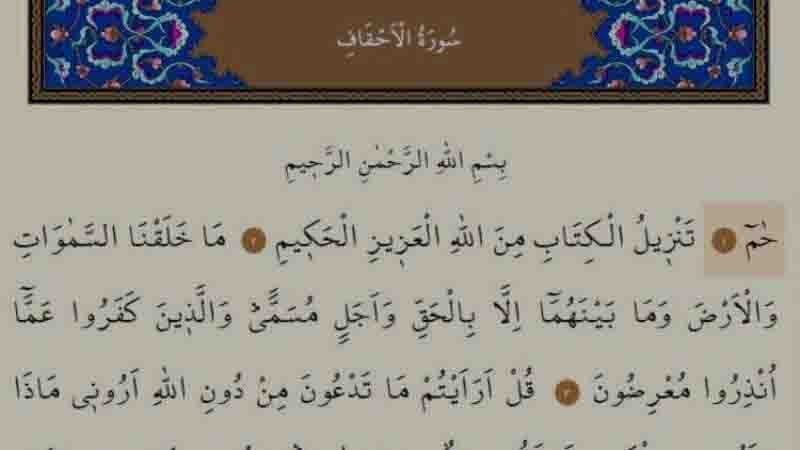 سُورَةُ الْاَحْقَافِ
بِسْمِ اللهِ الرَّحْمٰنِ الرَّح۪يمِ
حٰمٓ ﴿١﴾ تَنْز۪يلُ الْكِتَابِ مِنَ اللهِ الْعَز۪يزِ الْحَك۪يمِ ﴿٢﴾ مَا خَلَقْنَا السَّمٰوَاتِ
وَالْاَرْضَ وَمَا بَيْنَهُمَٓا اِلَّا بِالْحَقِّ وَاَجَلٍ مُسَمًّىۜ وَالَّذ۪ينَ كَفَرُوا عَمَّٓا
اُنْذِرُوا مُعْرِضُونَ ﴿٣﴾ قُلْ اَرَاَيْتُمْ مَا تَدْعُونَ مِنْ دُونِ اللهِ اَرُون۪ي مَاذَا